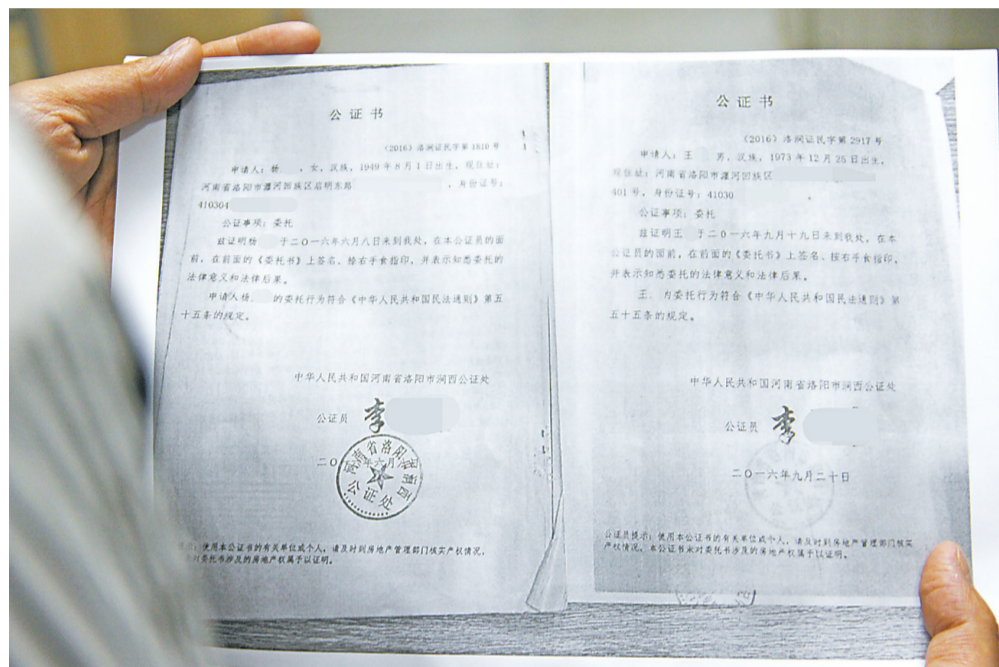 公证书
(2016)洛涧证民字第1810号
申请人:杨 ,女,汉族,1949年8月1日出生,现住址:
河南省洛阳市瀍河回族区启明东路 ,身份证号:
410304
公证事项:委托
兹证明杨 于二〇一六年六月八日来到我处,在本公证员的面
前,在前面的《委托书》上签名、捺右手食指印,并表示知悉委托的
法律意义和法律后果。
申请人杨 的委托行为符合《中华人民共和国民法通则》第五
十五条的规定。
中华人民共和国河南省洛阳市涧西公证处
公证员 李
二〇 年六月
河南省洛阳市涧西
公证处
使用本公证书的有关单位或个人,请及时到房地产管理部门核实产权情况。
对委托书涉及的房地产权属予以证明。
公证书
(2016)洛涧证民字第2917号
申请人:王 男,汉族,1973年12月25日出生,
现住址:河南省洛阳市瀍河回族区
401号,身份证号:41030
公证事项:委托
兹证明王 于二〇一六年九月十九日来到我处,在本
公证员的面前,在前面的《委托书》上签名、捺右手食指印,
并表示知悉委托的法律意义和法律后果。
王 委托行为符合《中华人民共和国民法通则》第
五十五条的规定。
中华人民共和国河南省洛阳市涧西公证处
公证员 李
二〇一六年九月二十日
公证员提示:使用本公证书的有关单位或个人,请及时到房地产管理部门核实
产权情况。本公证书未对委托书涉及的房地产权属予以证明。